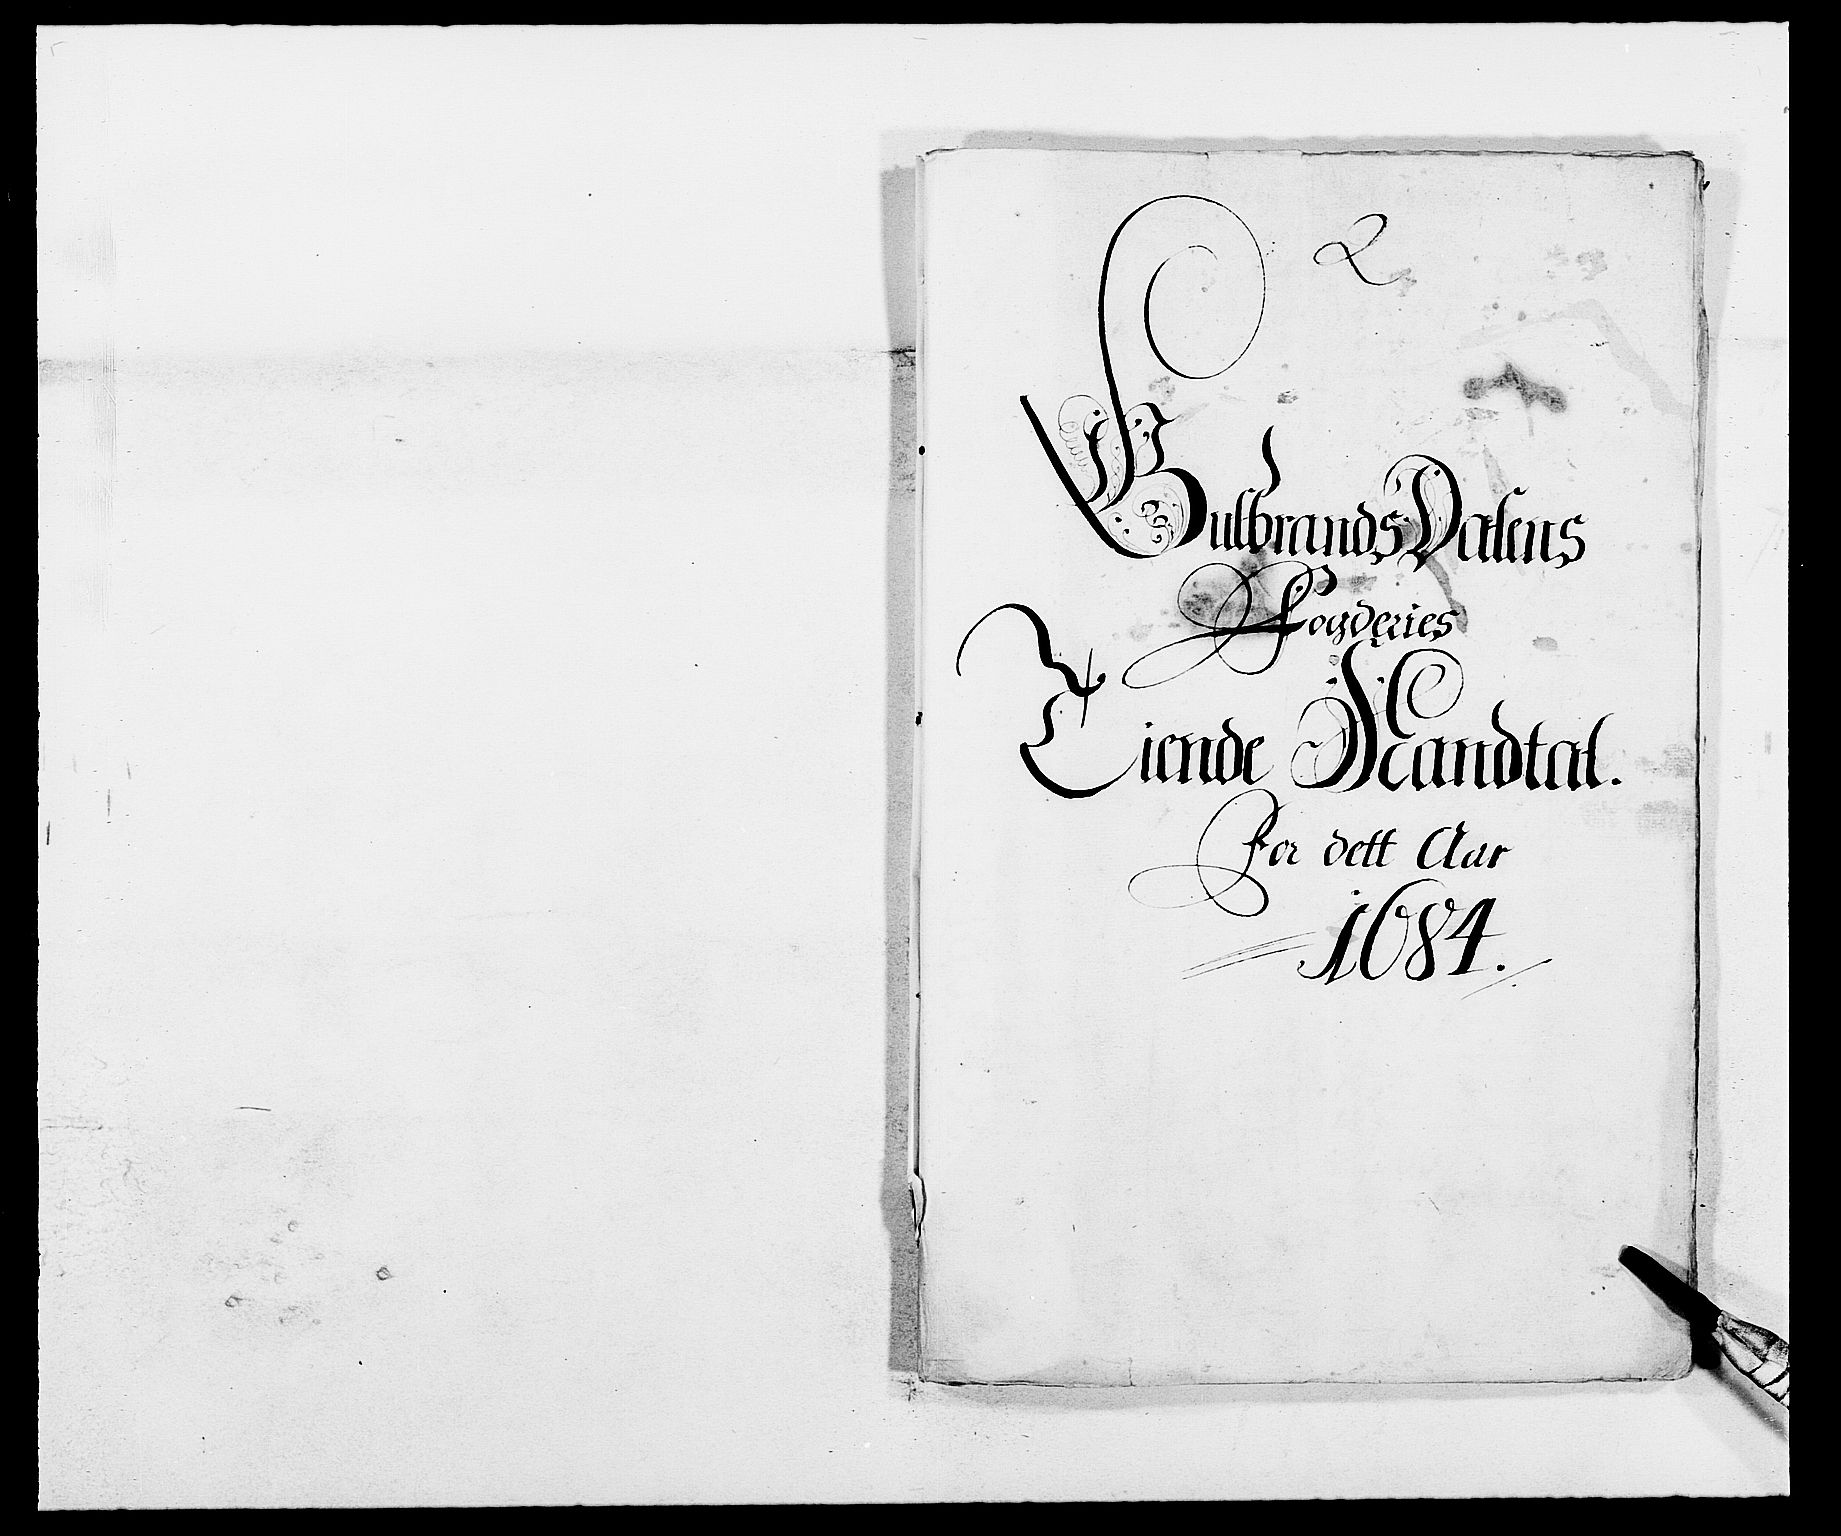 2
GulbrandsDalens
Fogderies
Tiende Mandtal.
For dett Aar
1684.